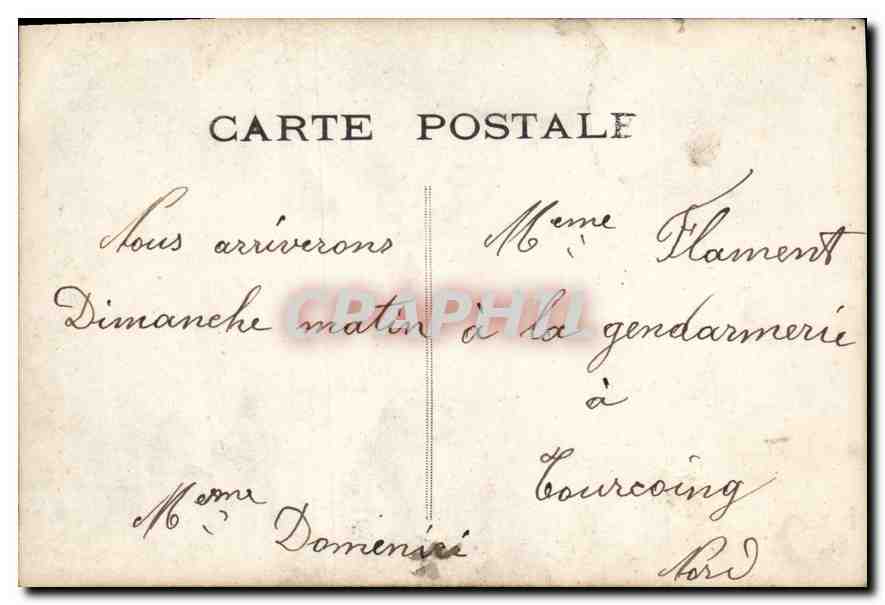 CARTE POSTALE
Nous arriverons
Dimanche matin
Meme Domenici
Meme Flament
à la gendarmerie
à
Tourcoing
Nord
CPAPHIL